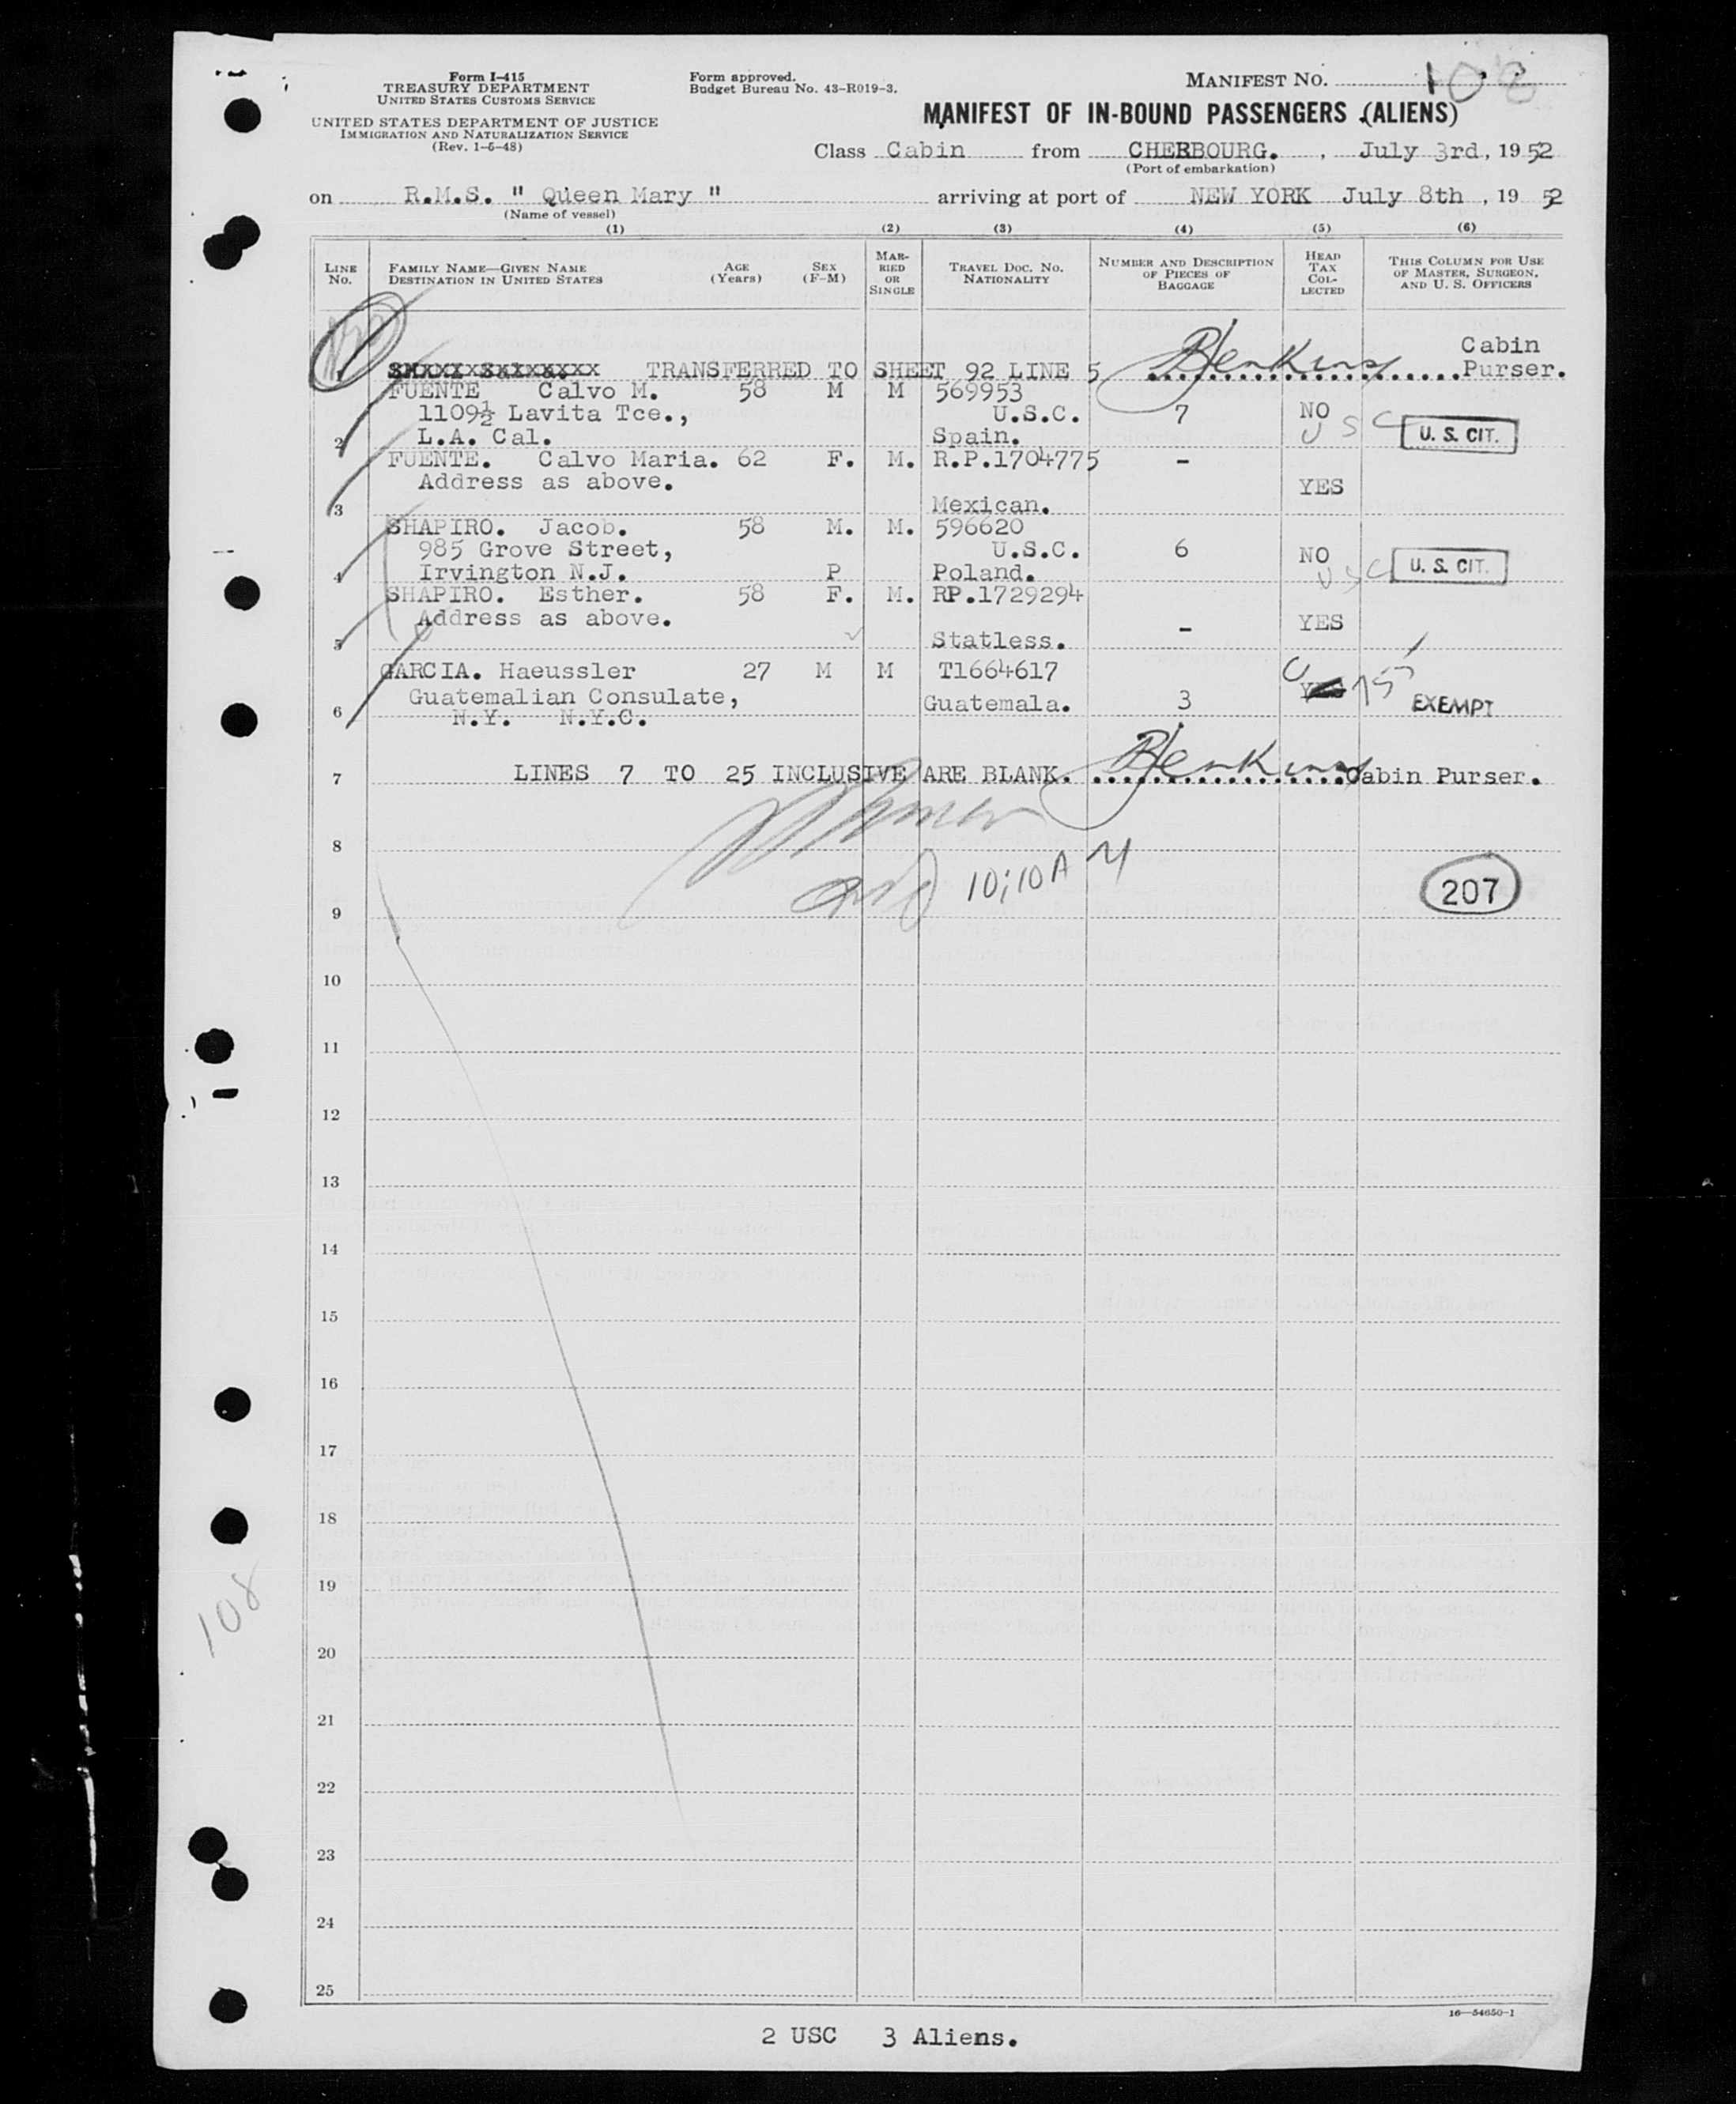 Form I-415
TREASURY DEPARTMENT
UNITED STATES CUSTOMS SERVICE
UNITED STATES DEPARTMENT OF JUSTICE
IMMIGRATION AND NATURALIZATION SERVICE
(Rev. 1-6-48)
Form approved.
Budget Bureau No. 43-R019-3.
MANIFEST NO. 108
MANIFEST OF IN-BOUND PASSENGERS (ALIENS)
Class Cabin from CHERBOURG. , July 3rd, 1952
(Port of embarkation)
on R.M.S. " Queen Mary " arriving at port of NEW YORK July 8th , 19 52
(Name of vessel)
(1) (2) (3) (4) (5) (6)
LINE NO.
FAMILY NAME—GIVEN NAME
DESTINATION IN UNITED STATES
AGE (Years)
SEX (F-M)
MARRIED OR SINGLE
TRAVEL DOC. NO. NATIONALITY
NUMBER AND DESCRIPTION OF PIECES OF BAGGAGE
HEAD TAX COLLECTED
THIS COLUMN FOR USE OF MASTER, SURGEON, AND U. S. OFFICERS
1 TRANSFERRED TO SHEET 92 LINE 5 Jenkins Cabin Purser.
FUENTE Calvo M. 58 M M 569953
1109½ Lavita Tce., U.S.C. 7 NO
2 L.A. Cal. Spain. USC U. S. CIT.
FUENTE. Calvo Maria. 62 F. M. R.P.1704775 -
Address as above. YES
3 Mexican.
SHAPIRO. Jacob. 58 M. M. 596620
985 Grove Street, U.S.C. 6 NO
4 Irvington N.J. P Poland. USC U. S. CIT.
SHAPIRO. Esther. 58 F. M. RP.1729294
Address as above. - YES
5 Statless.
GARCIA. Haeussler 27 M M T1664617
Guatemalian Consulate, Guatemala. 3 YES EXEMPT
6 N.Y. N.Y.C.
7 LINES 7 TO 25 INCLUSIVE ARE BLANK. Jenkins Cabin Purser.
8
10;10 AM
207
9
10
11
12
13
14
15
16
17
18
19
108
20
21
22
23
24
25
16—54650-1
2 USC 3 Aliens.